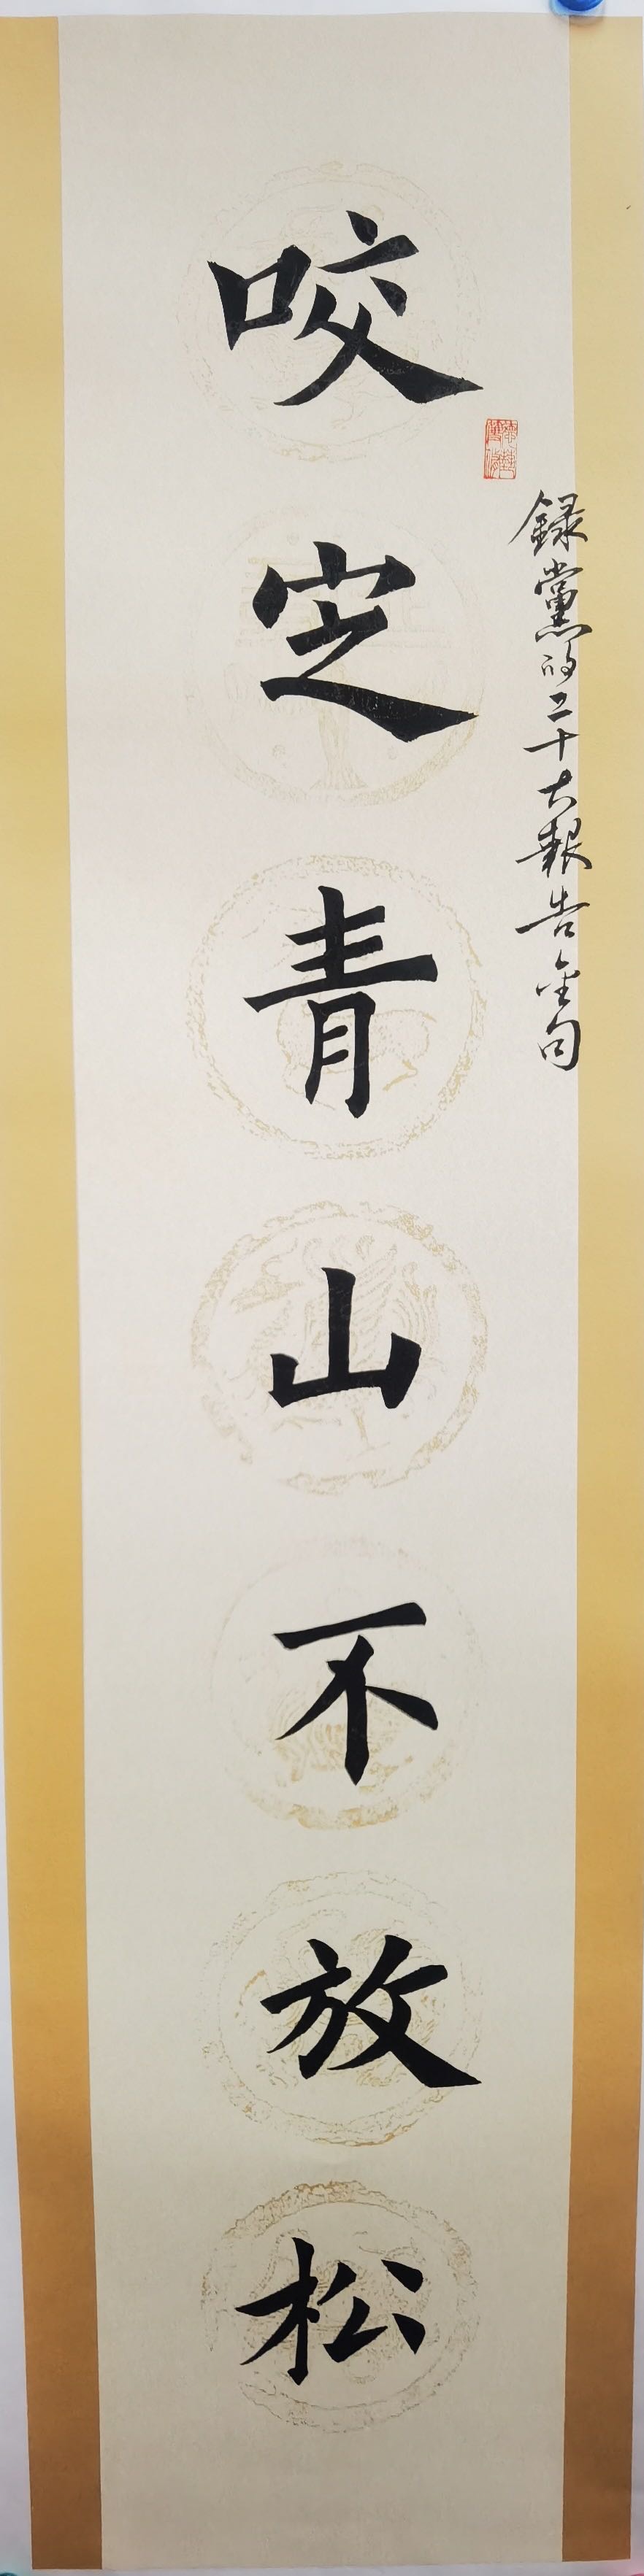 錄黨的二十大報告金句
咬定青山不放松